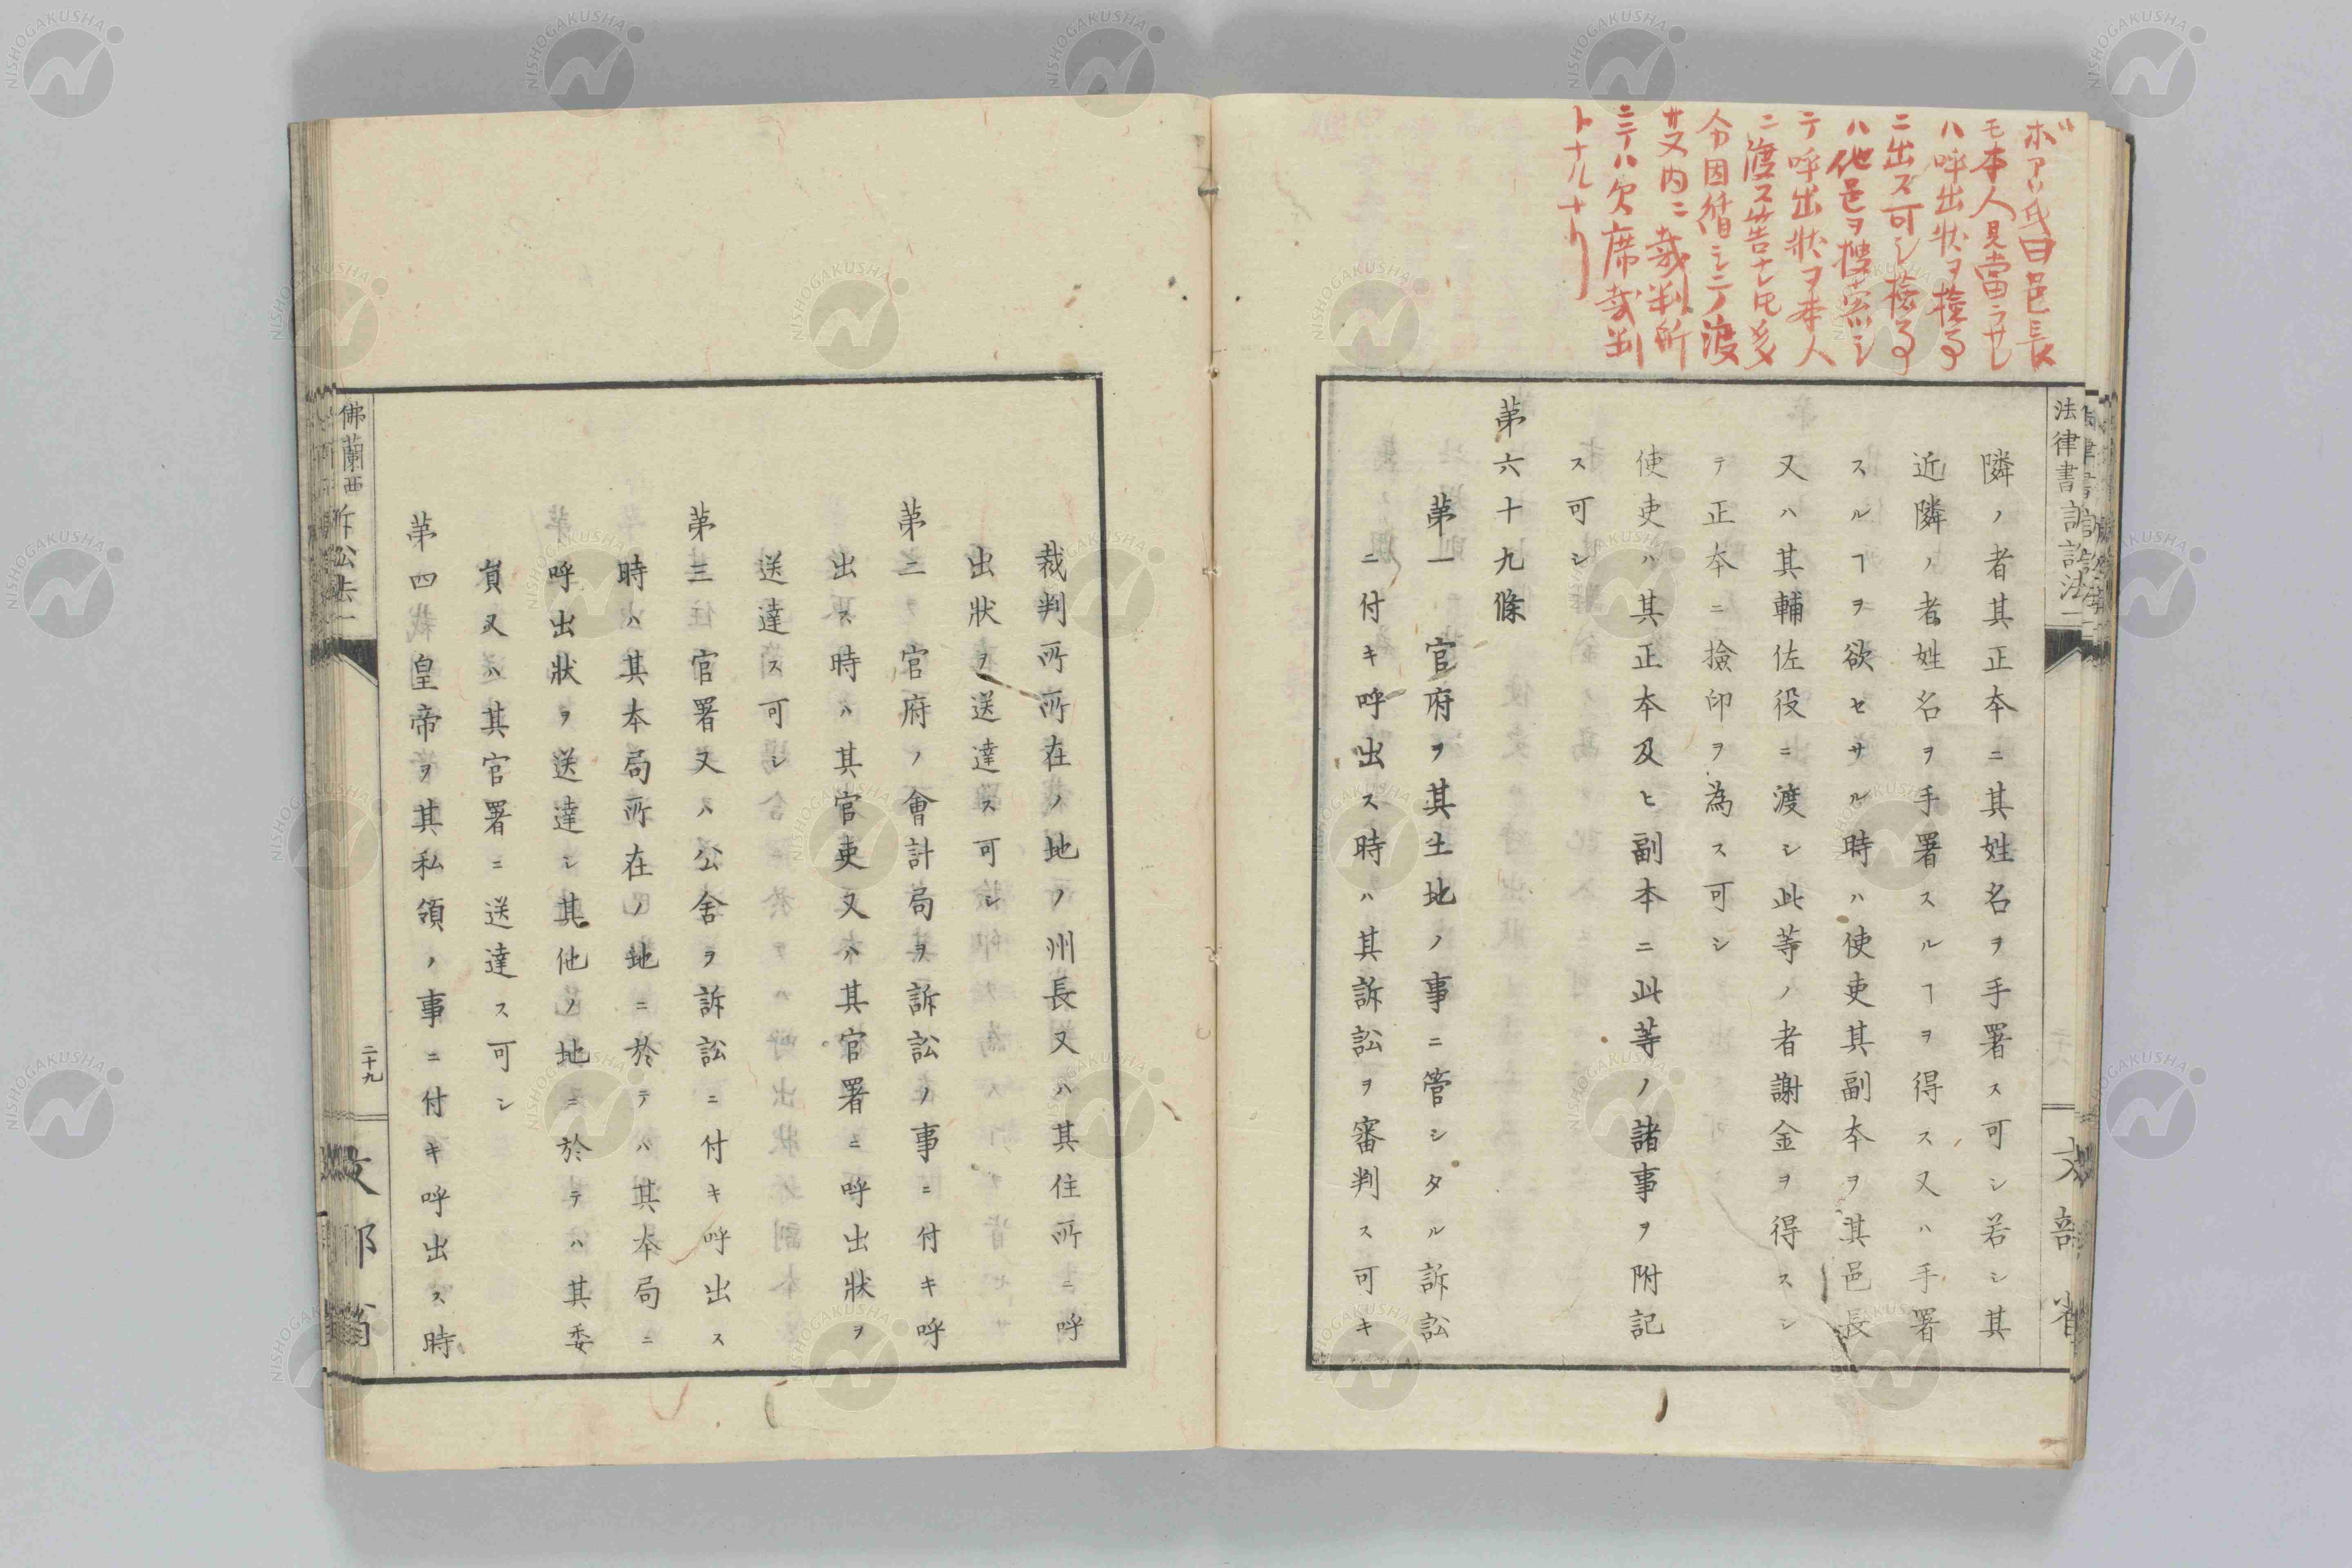 ボアソ氏曰邑長
モ本人見當ラサレ
ハ呼出状ヲ檢事
ニ出ス可シ檢事
ハ他邑ヲ捜索シ
テ呼出状ヲ本人
ニ渡ス筈ナレ𪜈多
分因循シテ渡
サス内ニ裁判所
ニテハ欠席裁判
トナルナリ
法律書訴訟法一
隣ノ者其正本ニ其姓名ヲ手署ス可シ若シ其
近隣ノ者姓名ヲ手署スルヿヲ得ス又ハ手署
スルヿヲ欲セサル時ハ使吏其副本ヲ其邑長
又ハ其輔佐役ニ渡シ此等ノ者謝金ヲ得スシ
テ正本ニ撿印ヲ為ス可シ
使吏ハ其正本及ヒ副本ニ此等ノ諸事ヲ附記
ス可シ
第六十九條
第一 官府ヲ其土地ノ事ニ管シタル訴訟
ニ付キ呼出ス時ハ其訴訟ヲ審判ス可キ
文部省
裁判所所在ノ地ノ州長又ハ其住所ニ呼
出状ヲ送達ス可シ
第二 官府ノ會計局ヲ訴訟ノ事ニ付キ呼
出ス時ハ其官吏又ハ其官署ニ呼出状ヲ
送達ス可シ
第三 官署又ハ公舎ヲ訴訟ニ付キ呼出ス
時ハ其本局所在ノ地ニ於テハ其本局ニ
呼出状ヲ送達シ其他ノ地ニ於テハ其委
員又ハ其官署ニ送達ス可シ
第四 皇帝ヲ其私領ノ事ニ付キ呼出ス時
佛蘭西訴訟法一
二十九
NISHOGAKUSHA